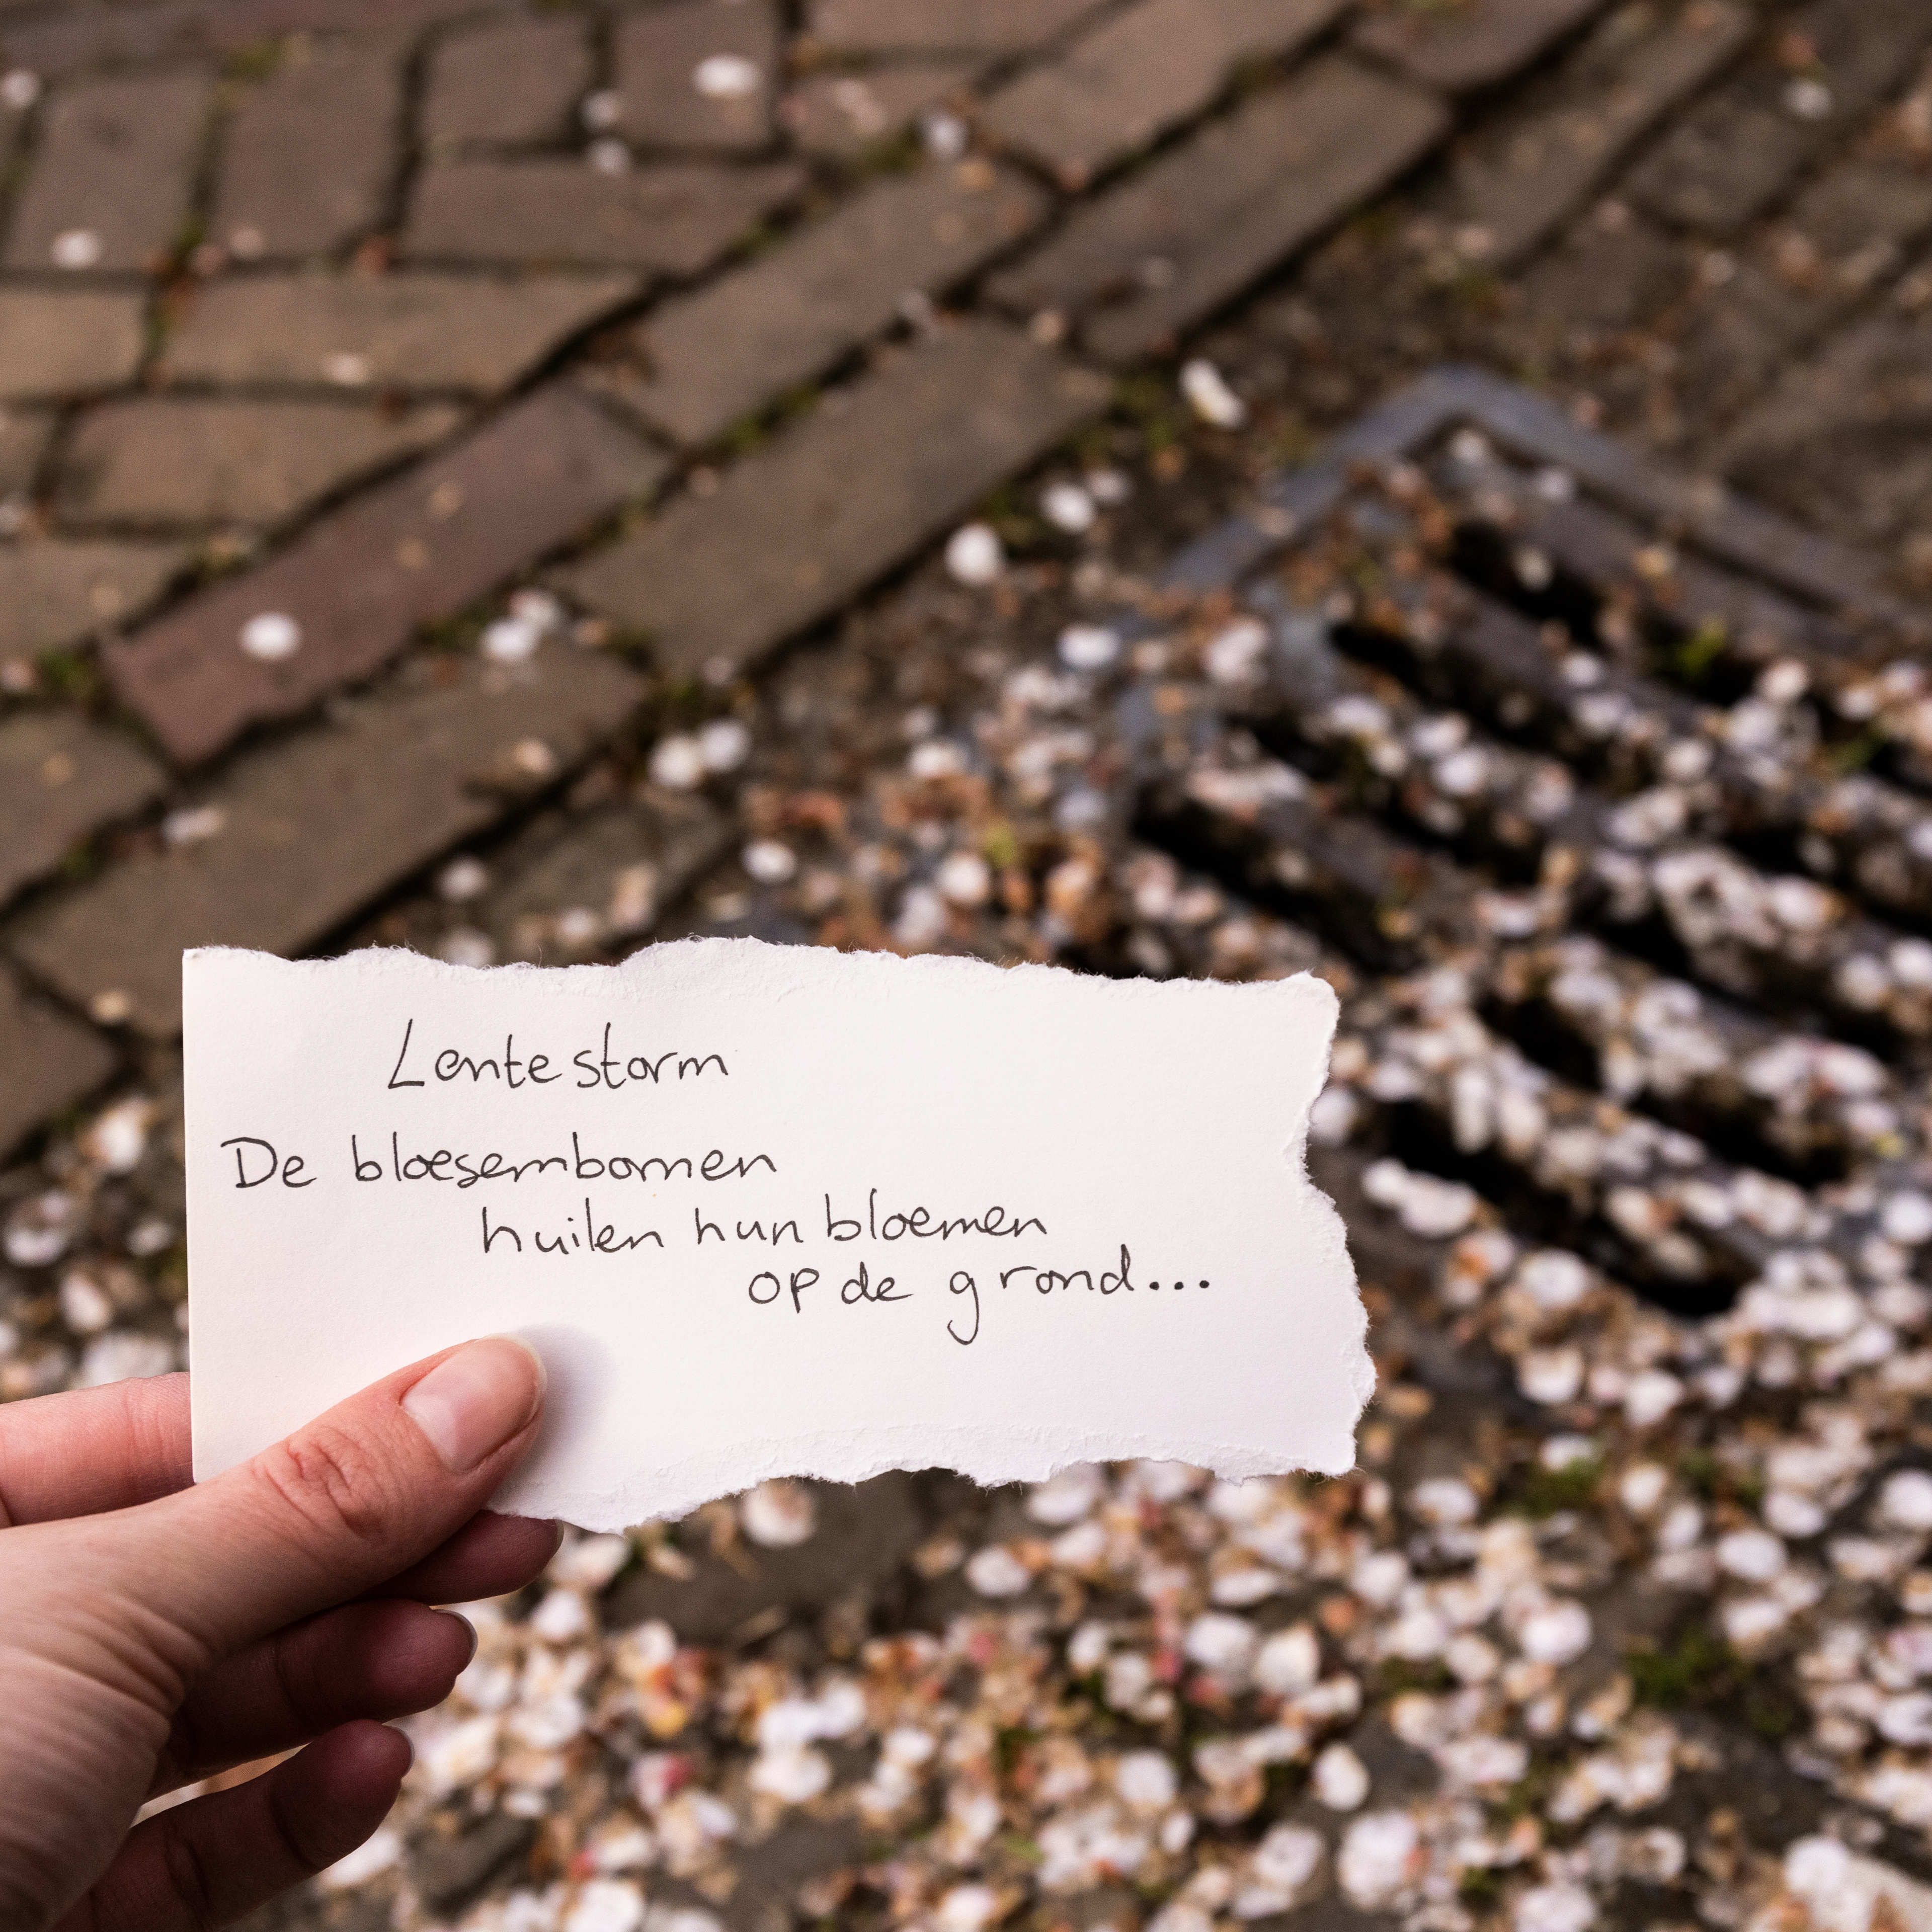 Lentestorm
De bloesembomen
huilen hun bloemen
op de grond...